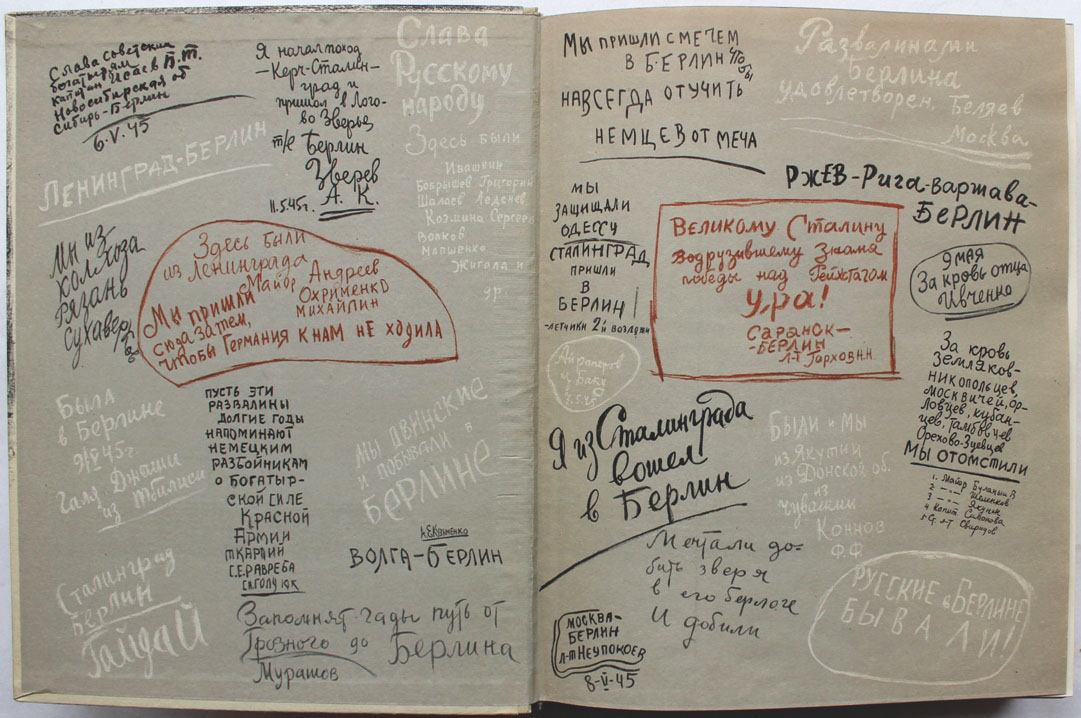 Слава советским
богатырям
капитан Исаев П.Т.
Новосибирская об
Сибирь-Берлин
6.V.45
Я начал поход
-Керч-Сталин-
град и
пришол в Лого-
во Зверье,
т/е Берлин
Зверев
А. К.
11.5.45г.
Слава
Русскому
народу
Здесь были
Ивашкин
Бобрышев Григорий
Шалаев Ладенев
Козмина Сергеев
Волков
Мапшенко
Жигала и
др
ЛЕНИНГРАД-БЕРЛИН
Мы из-
колхоза
Рязань
Сухавер
Здесь были
из Ленинграда
Майор Андреев
Охрименко
Михайлин
Мы пришли
сюда затем,
чтобы Германия к нам не ходила
Была
в Берлине
9/V 45г.
Галя
из Тбилиси
ПУСТЬ ЭТИ
РАЗВАЛИНЫ
ДОЛГИЕ ГОДЫ
НАПОМИНАЮТ
НЕМЕЦКИМ
РАЗБОЙНИКАМ
О БОГАТЫР-
СКОЙ СИЛЕ
КРАСНОЙ
АРМИИ
Мы двинские
и побывали в
БЕРЛИНЕ
ВОЛГА-БЕРЛИН
Сталинград
Берлин
Гайдай
Запомнят гады путь от
Грозного до Берлина
Мурашов
МЫ ПРИШЛИ С МЕЧЕМ
В БЕРЛИН ЧТОБЫ
НАВСЕГДА ОТУЧИТЬ
НЕМЦЕВ ОТ МЕЧА
Развалинами
Берлина
удовлетворен, Беляев
Москва
РЖЕВ-РИГА-ВАРЖАВА-
БЕРЛИН
МЫ
ЗАЩИЩАЛИ
ОДЕССУ
СТАЛИНГРАД
ПРИШЛИ
В
БЕРЛИН
-ЛЕТЧИКИ 2й ВОЗДАРМ
Великому Сталину
водрузившему Знамя
победы над Рейхстагом
Ура!
САРАНСК-
-БЕРЛИН
Л-Т Горхов Н.Н.
9 мая
За кровь отца
Ивченко
Айрапетов
из Баку
9.5.45
Я из Сталинграда
вошел
в Берлин
Были и мы
из Якутии
из Донской об.
из
Чувашии
Коннов
Ф.Ф.
За кровь
земляков-
никопольцев,
москвичей, ор-
ловцев, кубан-
цев, тамбовцев
Орехово-Зуевцев
МЫ ОТОМСТИЛИ
1. Майор Буланин В
4 Капит. Симонова
5 Ст. Л-т Свиридов
Мечтали до-
бить зверя
в его берлоге
И добили
МОСКВА-
БЕРЛИН
Л-Т НЕУПОКОЕВ
8-V-45
РУССКИЕ в БЕРЛИНЕ
БЫВАЛИ!